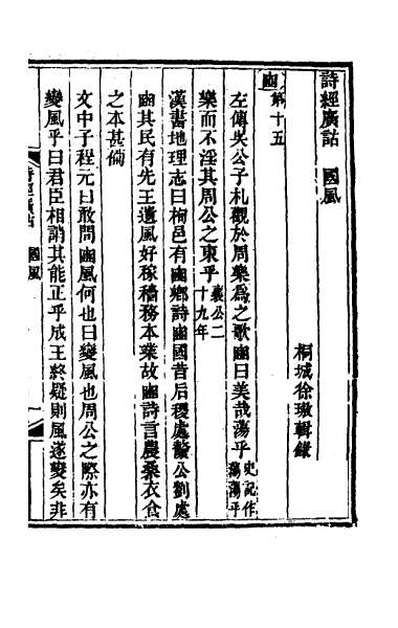 詩經廣詁　國風
桐城徐璈輯錄
豳第十五
左傳吳公子札觀於周樂為之歌豳曰美哉蕩乎史記作蕩蕩乎
樂而不淫其周公之東乎襄公二十九年
漢書地理志曰栒邑有豳鄉詩豳國昔后稷處斄公劉處
豳其民有先王遺風好稼穡務本業故豳詩言農桑衣食
之本甚備
文中子程元曰敢問豳風何也曰變風也周公之際亦有
變風乎曰君臣相誚其能正乎成王終疑則風遂變矣非
詩經廣詁　國風